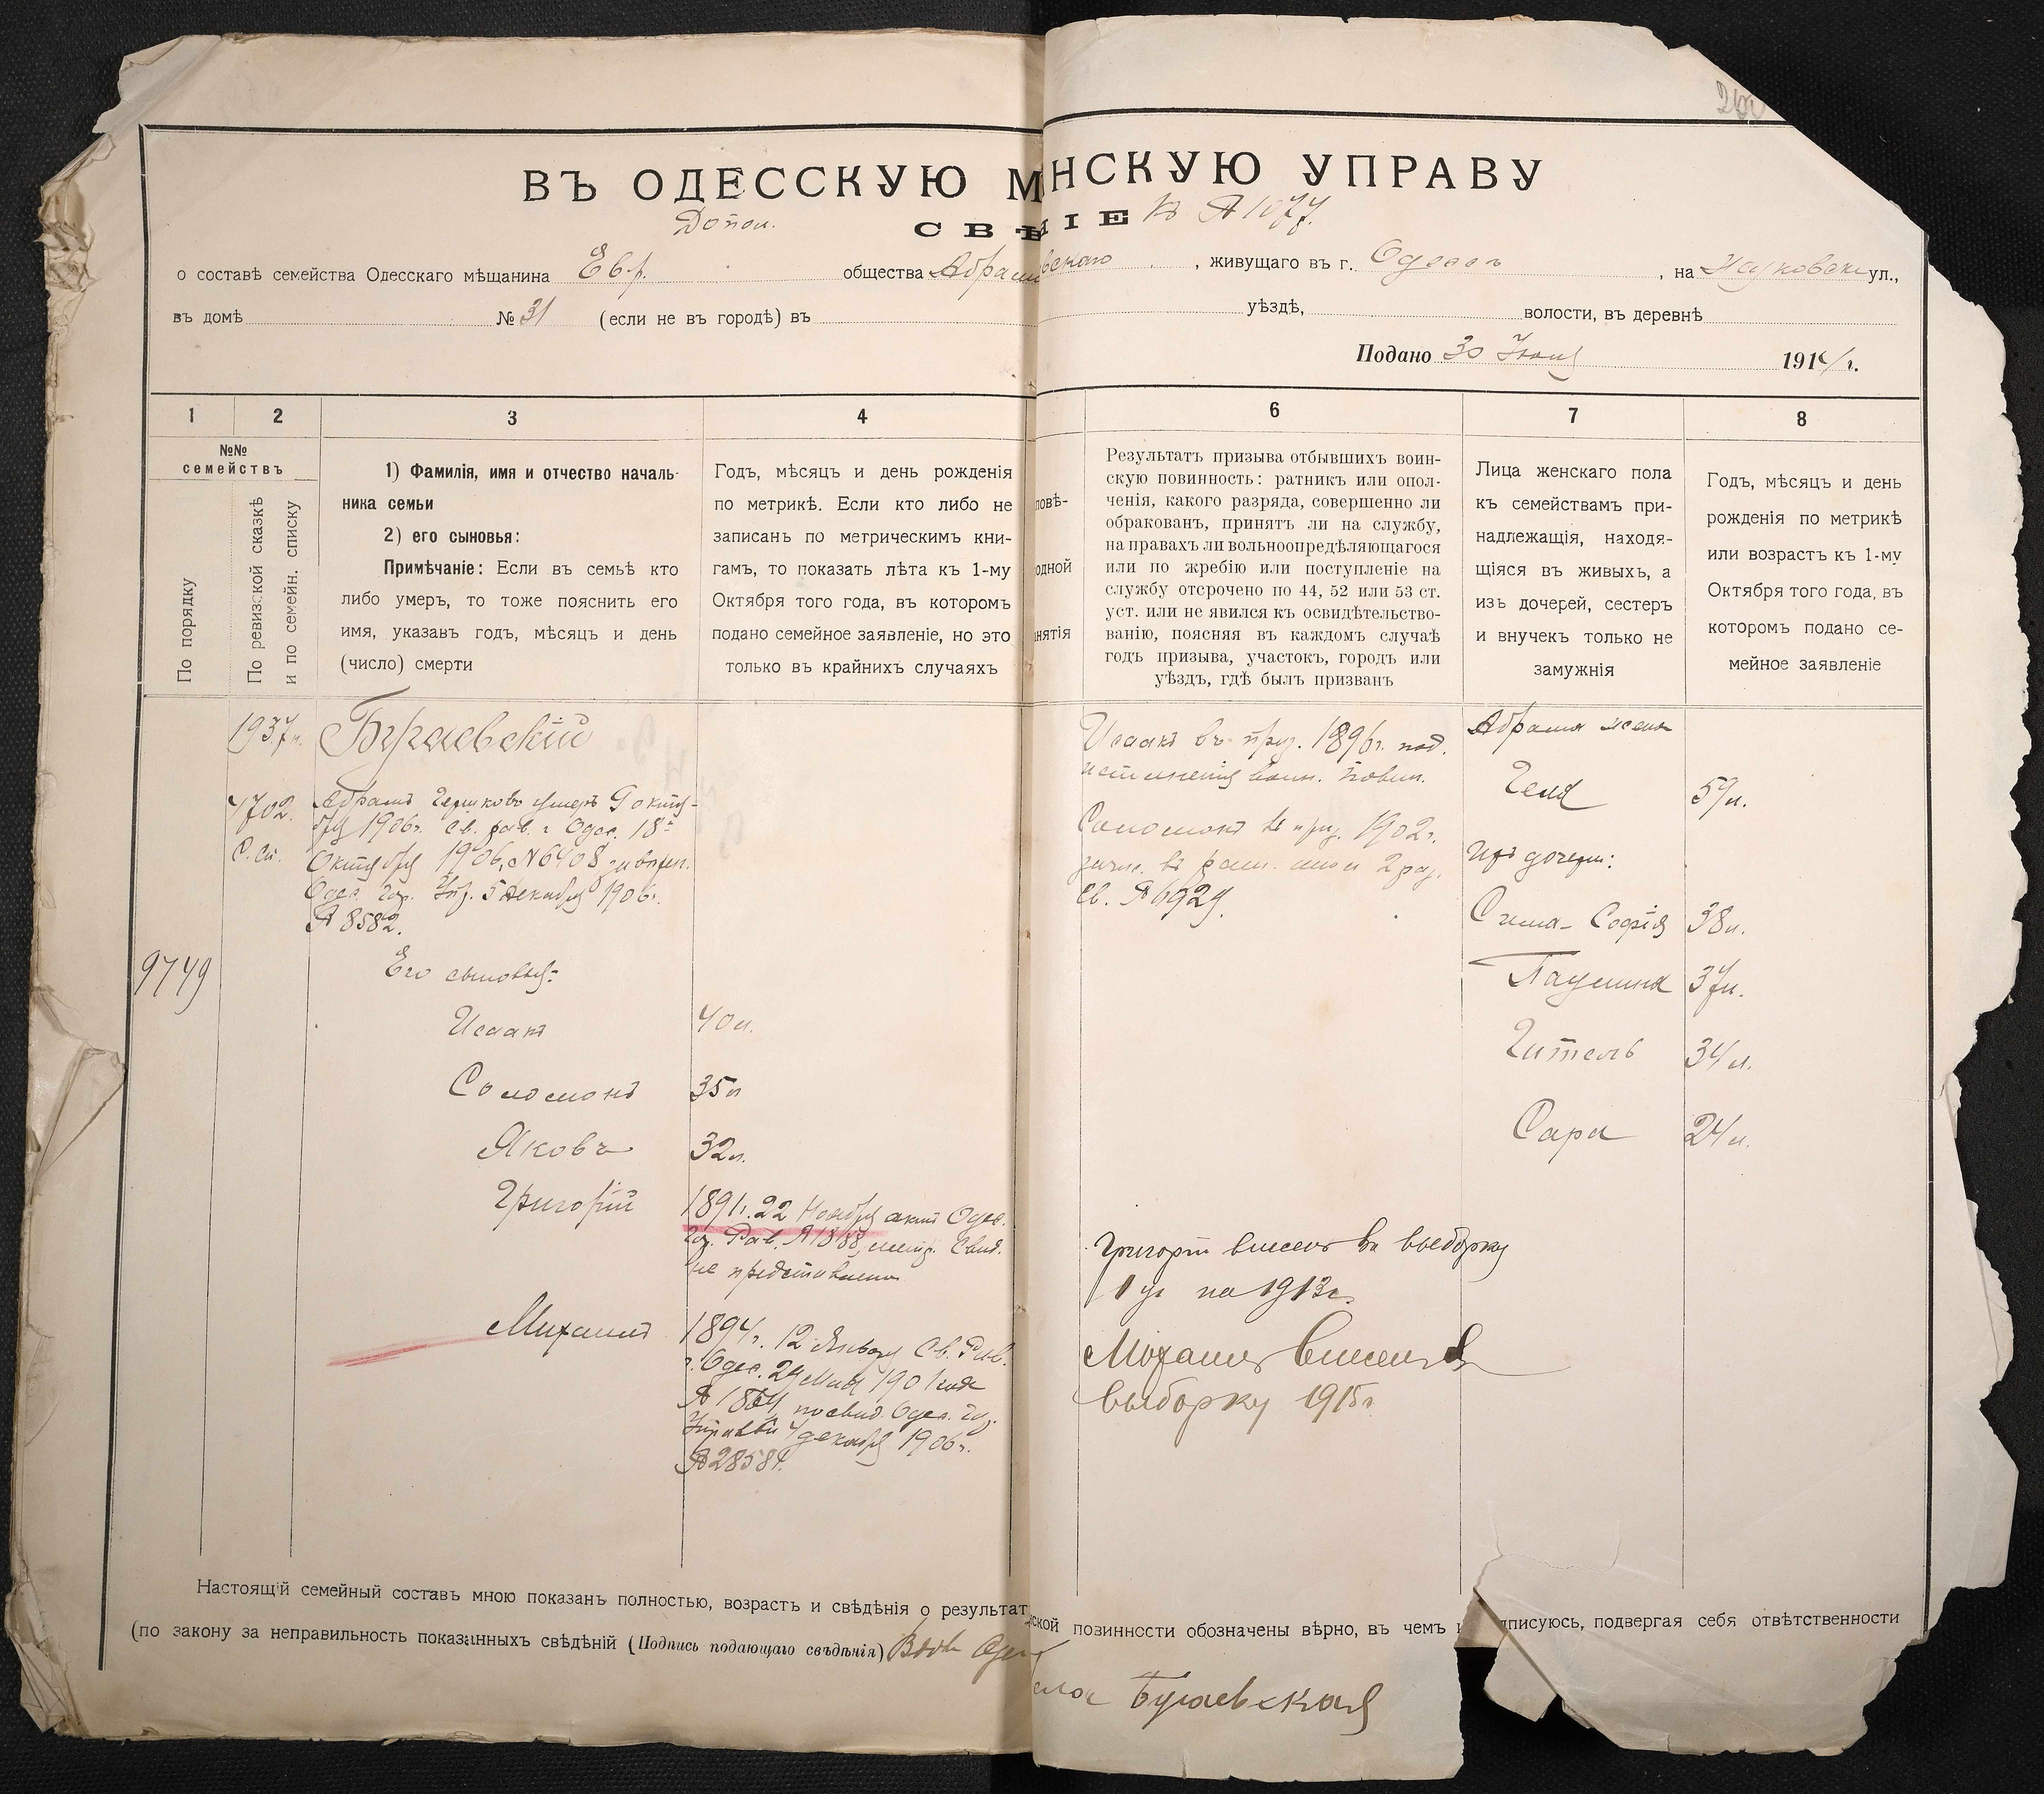 ВЪ ОДЕССКУЮ М НСКУЮ УПРАВУ
Допол. СВѢ ІЕ къ № 1077.
о составѣ семейства Одесскаго мѣщанина Евр. общества Абрам вскаго, живущаго въ г. Одессѣ, на ул.,
въ домѣ № 31 (если не въ городѣ) въ уѣздѣ, волости, въ деревнѣ
Подано 30 1914 г.
1 2 3 4 6 7 8
№№
семействъ
По порядку
По ревизской сказкѣ
и по семейн. списку
1) Фамилія, имя и отчество началь-
ника семьи
2) его сыновья:
Примѣчаніе: Если въ семьѣ кто
либо умеръ, то тоже пояснить его
имя, указавъ годъ, мѣсяцъ и день
(число) смерти
Годъ, мѣсяцъ и день рожденія
по метрикѣ. Если кто либо не
записанъ по метрическимъ кни-
гамъ, то показать лѣта къ 1-му
Октября того года, въ которомъ
подано семейное заявленіе, но это
только въ крайнихъ случаяхъ
повѣ-
одной
нятія
Результатъ призыва отбывшихъ воин-
скую повинность: ратникъ или опол-
ченія, какого разряда, совершенно ли
обракованъ, принятъ ли на службу,
на правахъ ли вольноопредѣляющагося
или по жребію или поступленіе на
службу отсрочено по 44, 52 или 53 ст.
уст. или не явился къ освидѣтельство-
ванію, поясняя въ каждомъ случаѣ
годъ призыва, участокъ, городъ или
уѣздъ, гдѣ былъ призванъ
Лица женскаго пола
къ семействамъ при-
надлежащія, находя-
щіяся въ живыхъ, а
изъ дочерей, сестеръ
и внучекъ только не
замужнія
Годъ, мѣсяцъ и день
рожденія по метрикѣ
или возрастъ къ 1-му
Октября того года, въ
которомъ подано се-
мейное заявленіе
1937
Бугаевскій
4702.
С. сп.
Абрамъ Гершковъ умеръ октя-
бря 1906г. Св. рав. г. Одес. 18
Октября 1906, № 6408
Одес. гор. Упр. 5 декабря 1906г.
№ 8582.
9749
Его сыновья:
Исаакъ 40 л.
Соломонъ 35 л
Яковъ 32 л.
Григорій 1891г. 22 Ноября актъ Одес.
гор. Рав. метр. свид.
не представлено
Михаилъ 1894г. 12 Января Св. Рав.
г. Одес. 24 Мая 1901 года
№ 1864, по свид. Одес. гор.
Управы 4 декабря 1906г.
№ 28584.
Исаакъ въ приз. 1896г. под.
исполненія воин. повин.
Соломонъ въ приз. 1902г.
зачис. въ рат. опол 2 раз.
Св. № 6929.
Григорій внесенъ въ выборку
1 уч на 1913г.
Михаилъ внесенъ въ
выборку 1915г.
Абрама жена
Геня 57 л.
Ихъ дочери:
Сима-Софія 38 л.
Паулина 37 л.
Гитель 34 л.
Сара 24 л.
Настоящій семейный составъ мною показанъ полностью, возрастъ и свѣдѣнія о результат ской повинности обозначены вѣрно, въ чемъ и дписуюсь, подвергая себя отвѣтственности
(по закону за неправильность показанныхъ свѣдѣній (Подпись подающаго свѣдѣнія) Вдов
Бугаевская